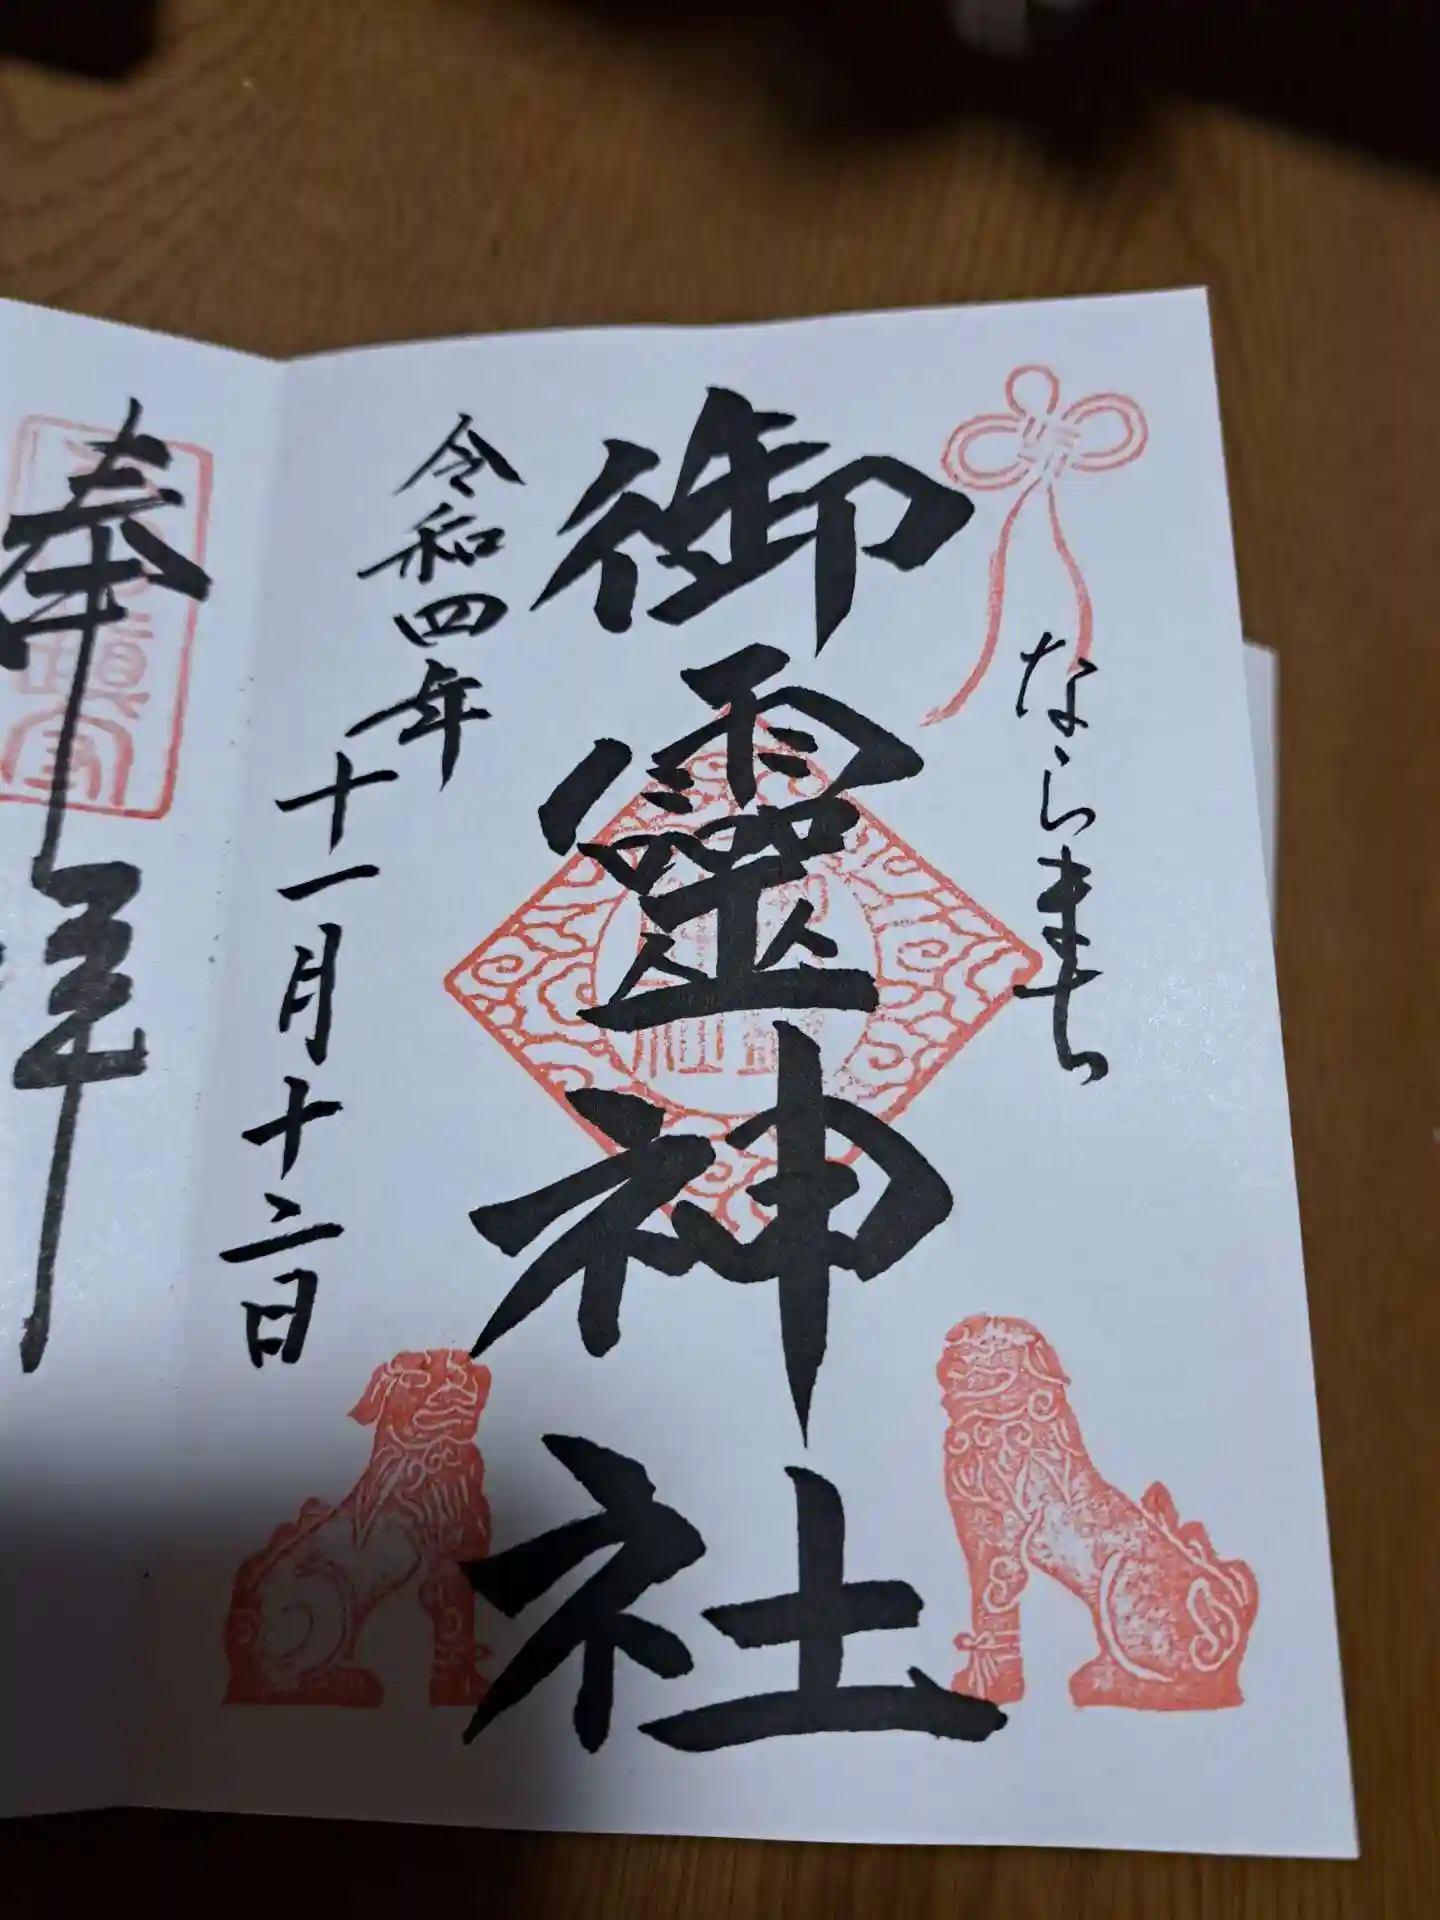 ならまち
御靈神社
令和四年
十一月十二日
奉拝